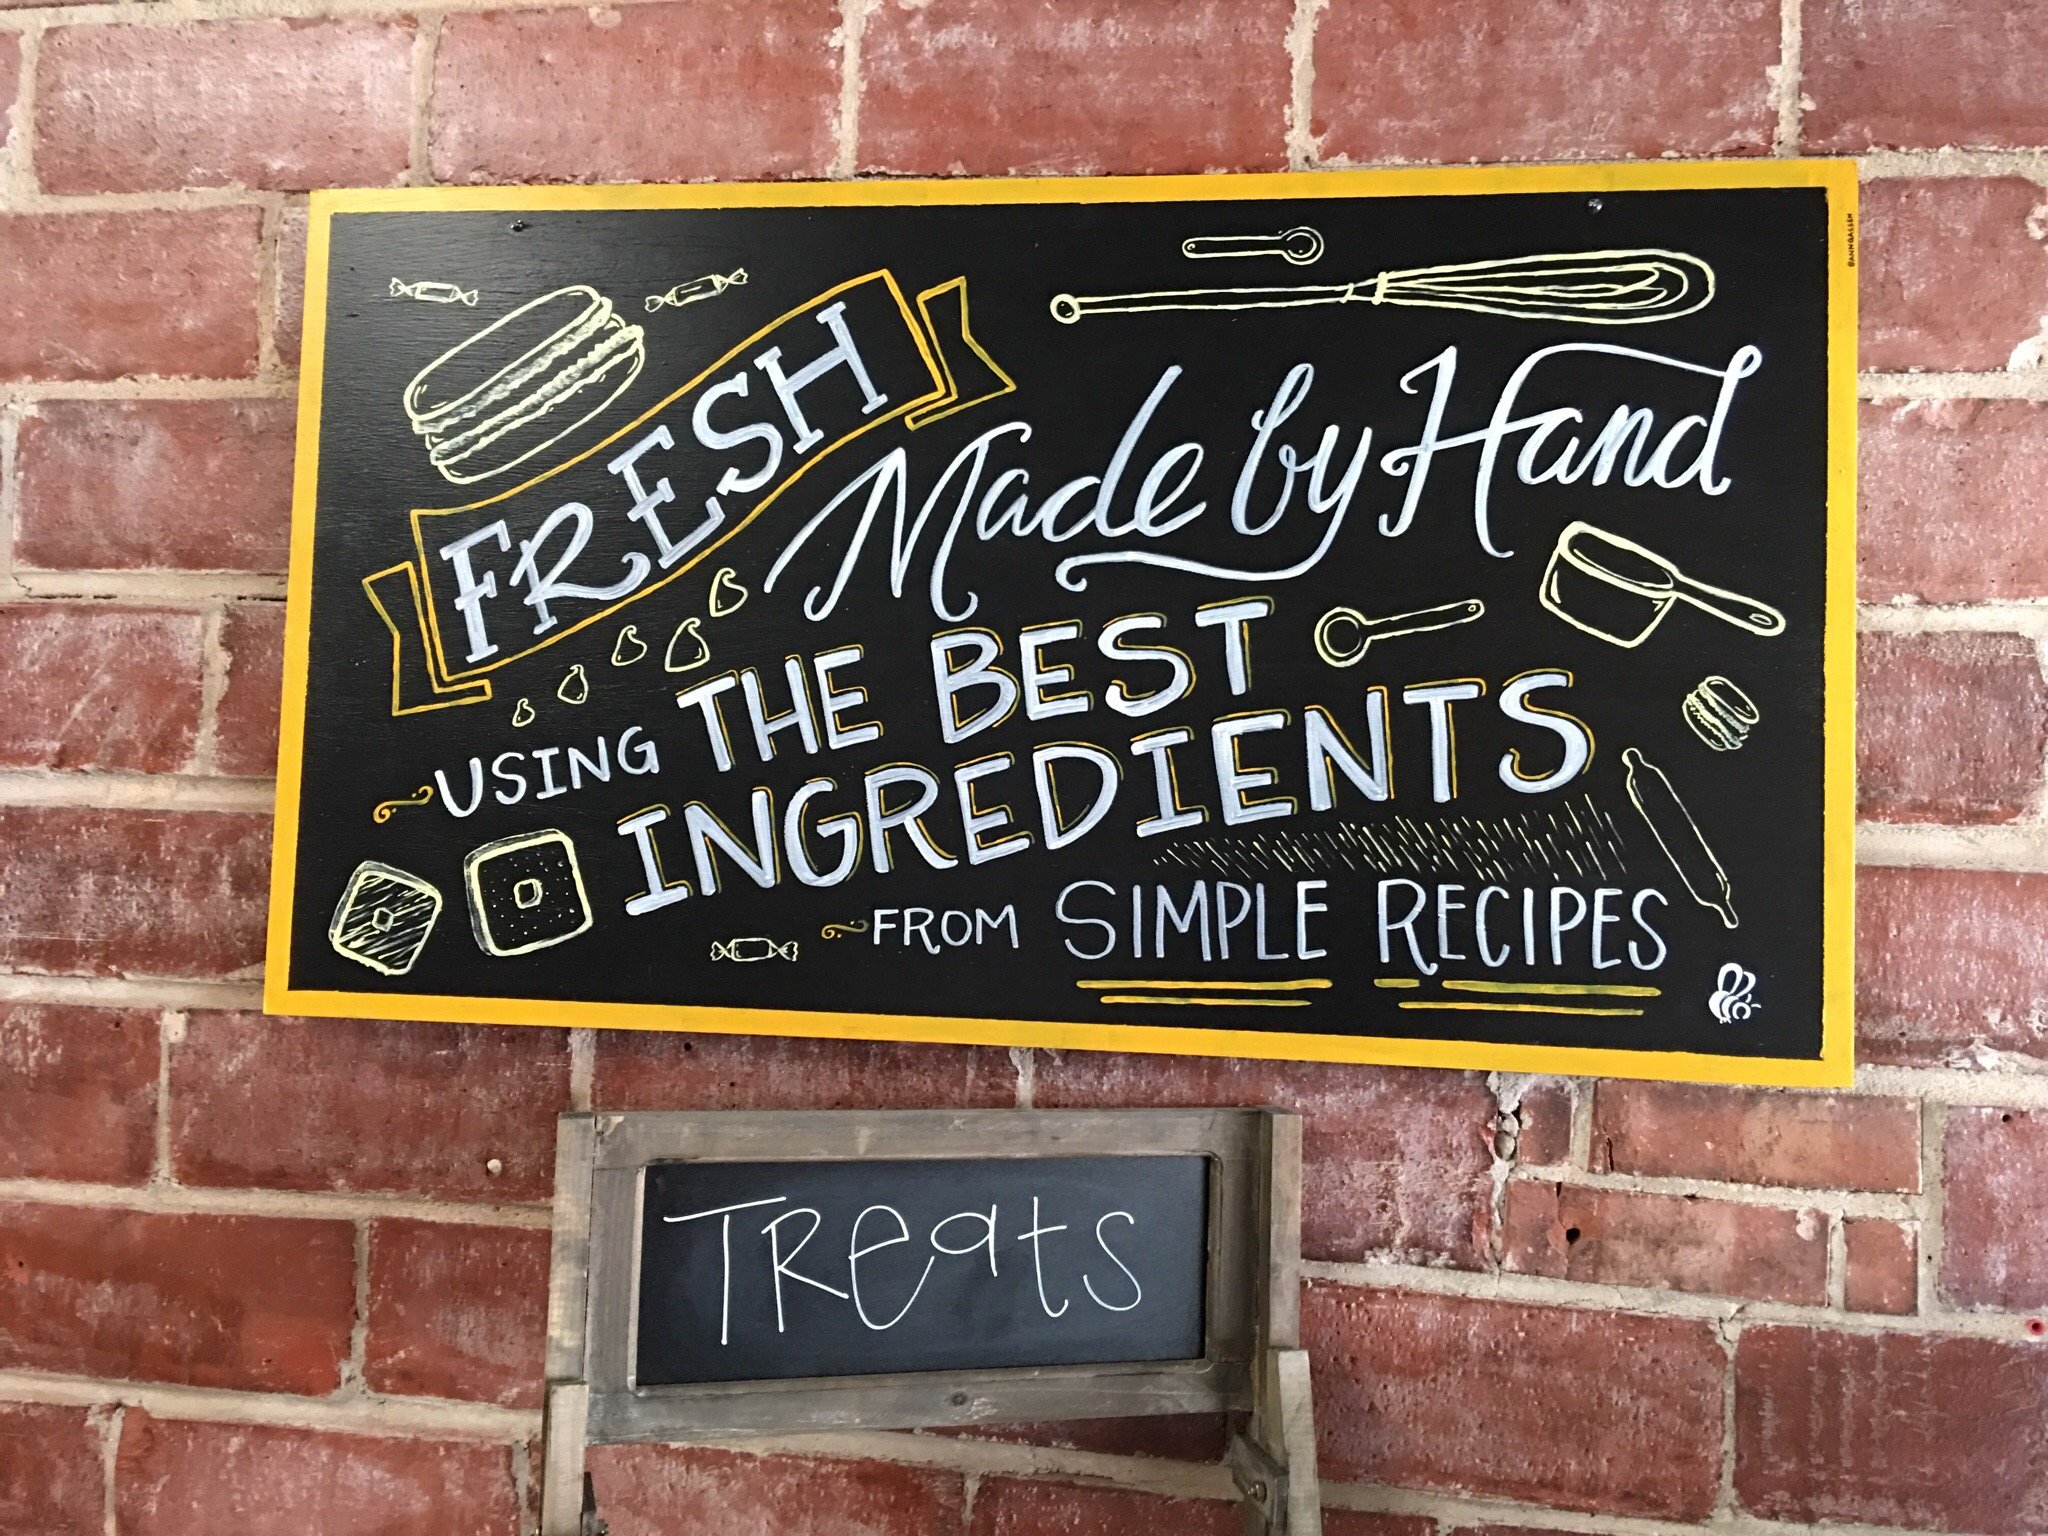 FRESH
Made by Hand
USING THE BEST
INGREDIENTS
FROM SIMPLE RECIPES
@ANNGASSEN
TReats